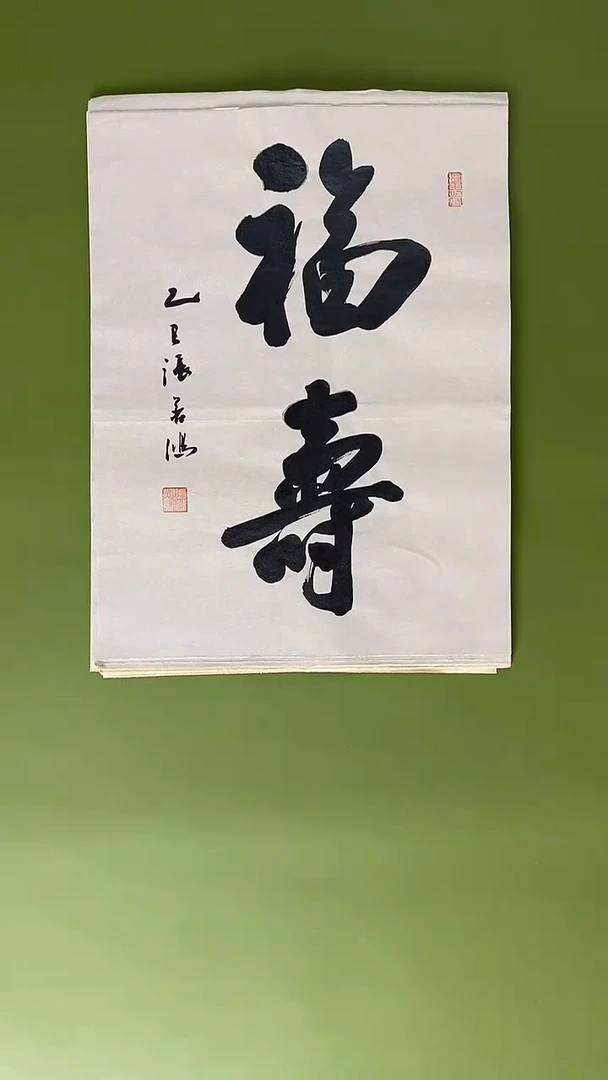 福壽
乙巳張若鴻